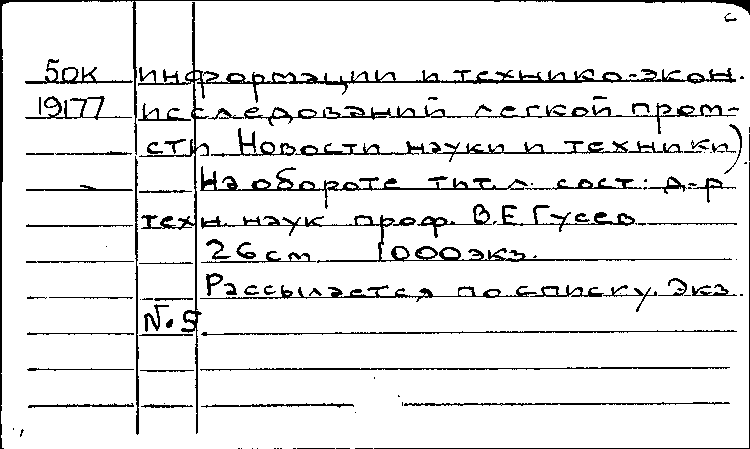 50к информации и технико-экон.
19177 исследований легкой пром-
сти. Новости науки и техники)
На обороте тит. л. сост: д-р
техн. наук проф. В.Е. Гусев
26 см 1000 экз.
Рассылается по списку. Экз
№ 5.